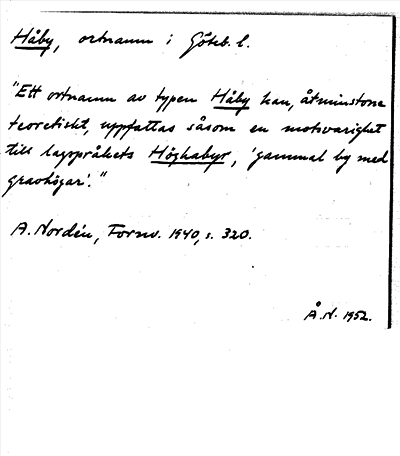 Håby, ortnamn i Göteb. l.
"Ett ortnamn av typen Håby kan, åtminstone
teoretiskt, uppfattas såsom en motsvarighet
till lagspråkets Höghabyr, 'gammal by med
gravhögar'."
A. Nordén, Fornv. 1940, s. 320.
Å. N. 1952.